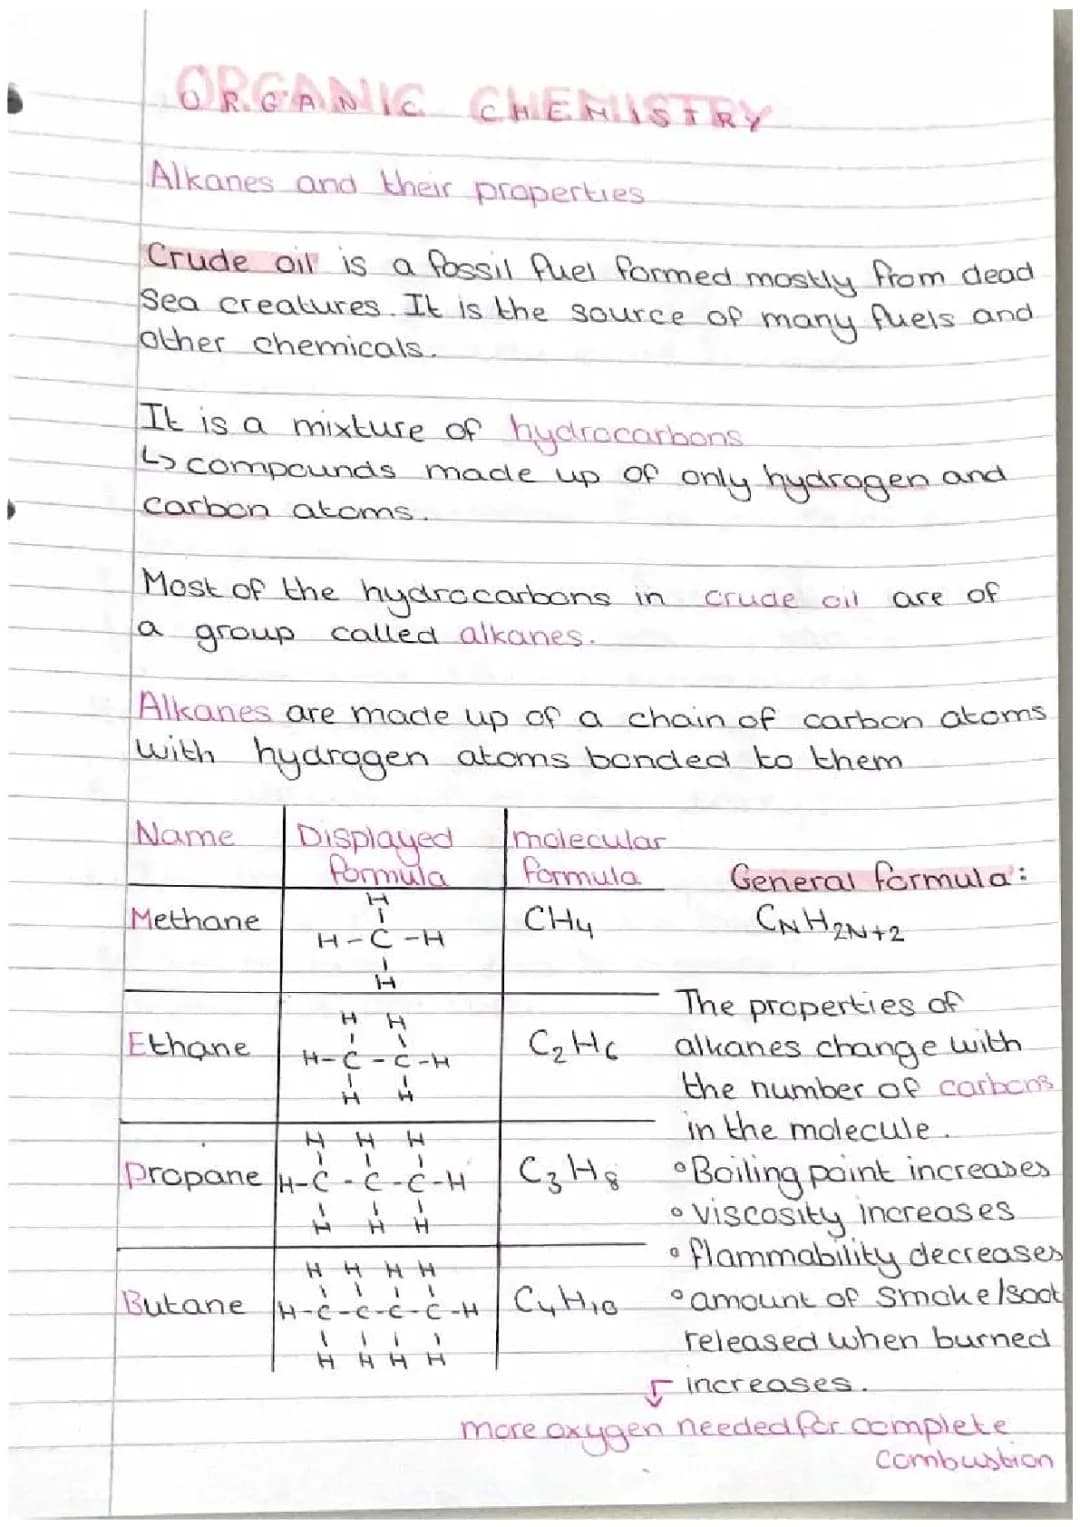 ORGANIC CHEMISTRY
Alkanes and their properties
Crude oil is a fossil fuel formed mostly from dead
sea creatures. It is the source of many fuels and
other chemicals.
It is a mixture of hydrocarbons
↳ compounds made up of only hydrogen and
carbon atoms.
Most of the hydrocarbons in crude oil are of
a group called alkanes.
Alkanes are made up of a chain of carbon atoms
with hydrogen atoms bonded to them
Name
Displayed
formula
molecular
formula
Methane
H
H-C-H
H
CH4
Ethane
H H
H-C-C-H
H H
C2H6
Propane
H H H
H-C-C-C-H
H H H
C3H8
Butane
H H H H
H-C-C-C-C-H
H H H H
C4H10
General formula:
CNH2N+2
The properties of
alkanes change with
the number of carbons
in the molecule.
• Boiling point increases
• viscosity increases
• flammability decreases
• amount of smoke/soot
released when burned
increases.
more oxygen needed for complete
combustion